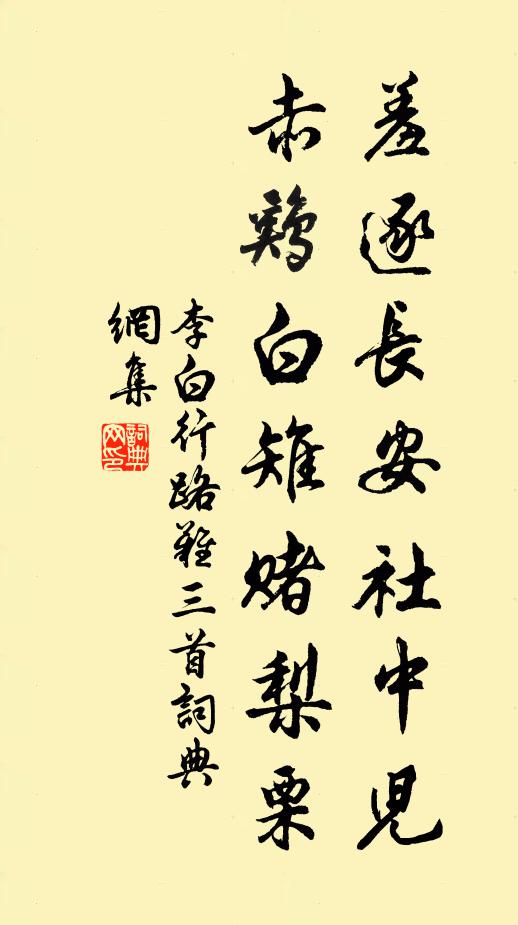 羞逐長安社中兒
赤鷄白雉賭梨栗
李白行路難三首詞典
網集
詞典
网印